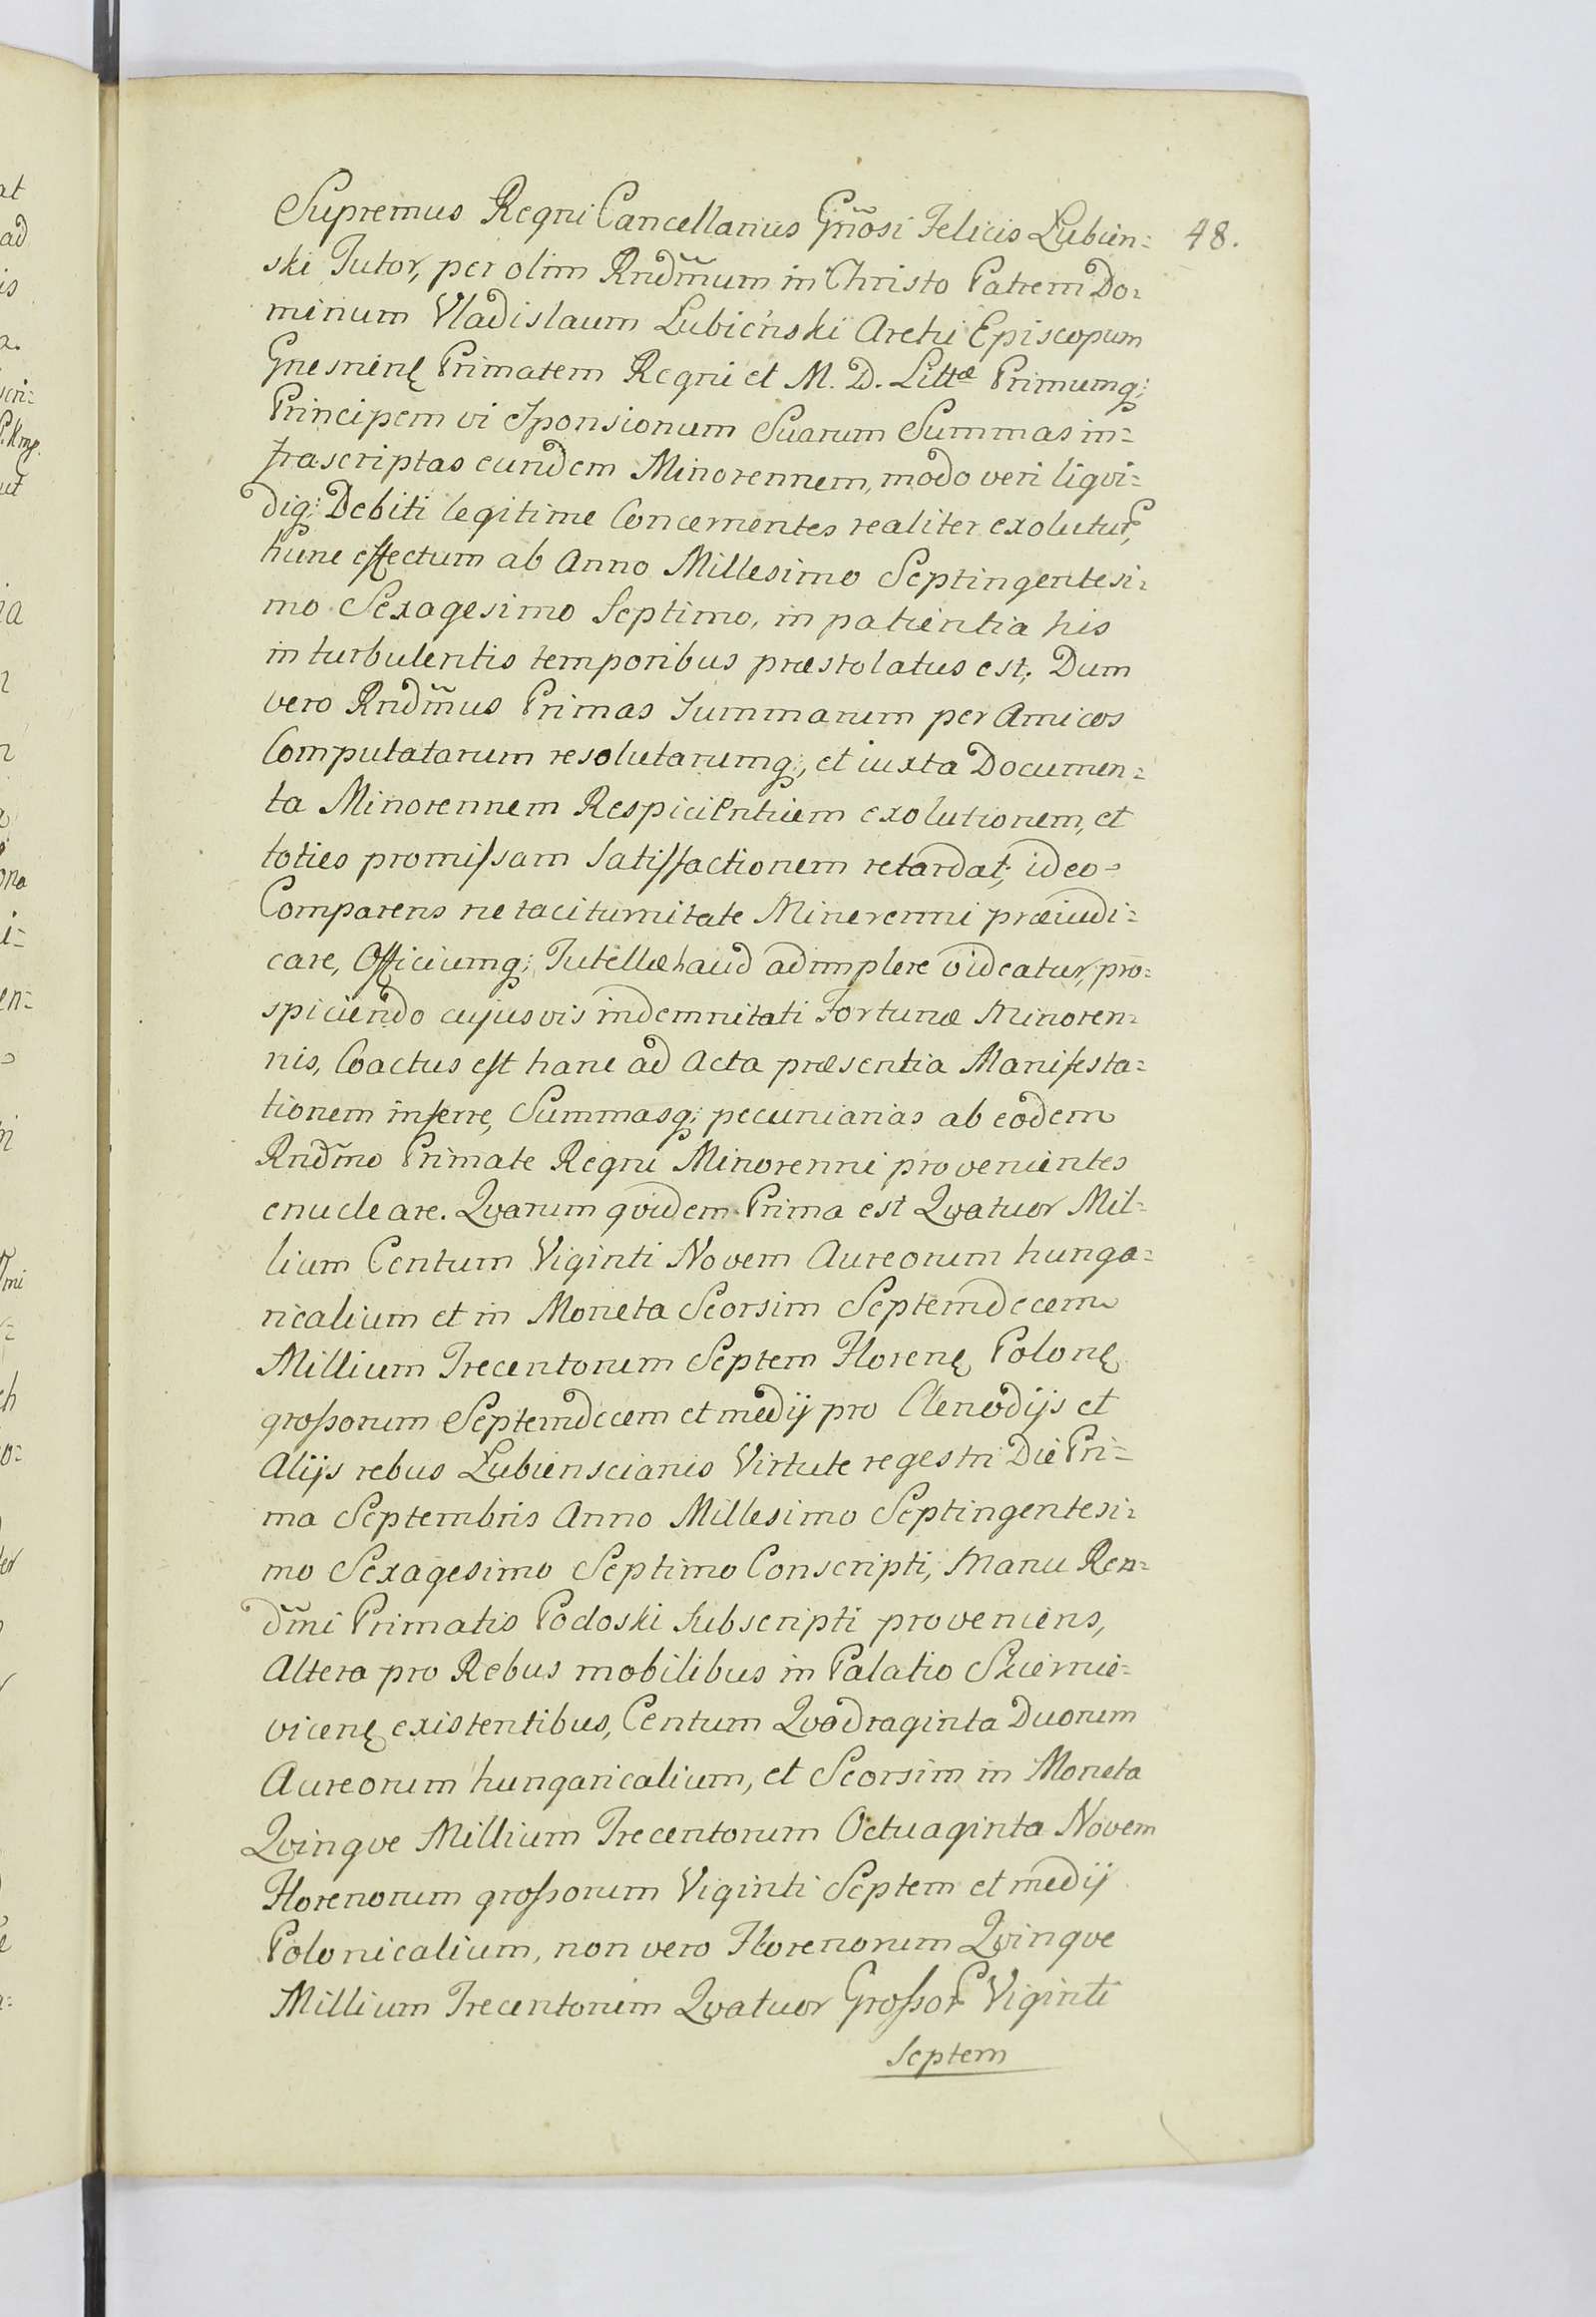 Supremus Regni Cancellarius Gñosi Felicis Lubien= 48.
ski Tutor, per olim Rndm̃um in Christo Patrem Do=
minum Vladislaum Lubieński Archi Episcopum
Gnesnenę Primatem Regni et M. D. Littæ Primumq;
Principem vi Sponsionum Suarum Summas in=
frascriptas eundem Minorennem, modo veri liqvi=
diq; Debiti legitime Concernentes realiter exolutur,
hunc effectum ab Anno Millesimo Septingentesi=
mo Sexagesimo Septimo, in patientia his
in turbulentis temporibus præstolatus est; Dum
vero Rndm̃us Primas Summarum per Amicos
Computatarum resolutarumq;, et iuxta Documen=
ta Minorennem Respicientium exolutionem, et
toties promissam Satisfactionem retardat; ideo=
Comparens ne taciturnitate Minerenni præiudi=
care, Officiumq; Tutellæ haud adimplere videatur, pro=
spiciendo cujusvis indemnitati Fortunæ Minoren=
nis, Coactus est hanc ad Acta præsentia Manifesta=
tionem inferre, Summasq; pecuniarias ab eodem
Rndm̃o Primate Regni Minorenni provenientes
enucleare. Qvarum qvidem Prima est Qvatuor Mil=
lium Centum Viginti Novem Aureorum hunga=
ricalium et in Moneta Seorsim Septemdecem
Millium Trecentorum Septem Florenę Polonę
grossorum Septemdecem et medij pro Clenodijs et
Alijs rebus Lubienscianis Virtute regestri Die Pri=
ma Septembris Anno Millesimo Septingentesi=
mo Sexagesimo Septimo Conscripti, Manu Ren=
dm̃i Primatis Podoski Subscripti proveniens,
Altera pro Rebus mobilibus in Palatio Skiernie=
vicenę existentibus, Centum Qvadraginta Duorum
Aureorum hungaricalium, et Seorsim in Moneta
Qvinqve Millium Trecentorum Octuaginta Novem
Florenorum grossorum Viginti Septem et medij
Polonicalium, non vero Florenorum Qvinqve
Millium Trecentorum Qvatuor Grossor Viginti
Septem